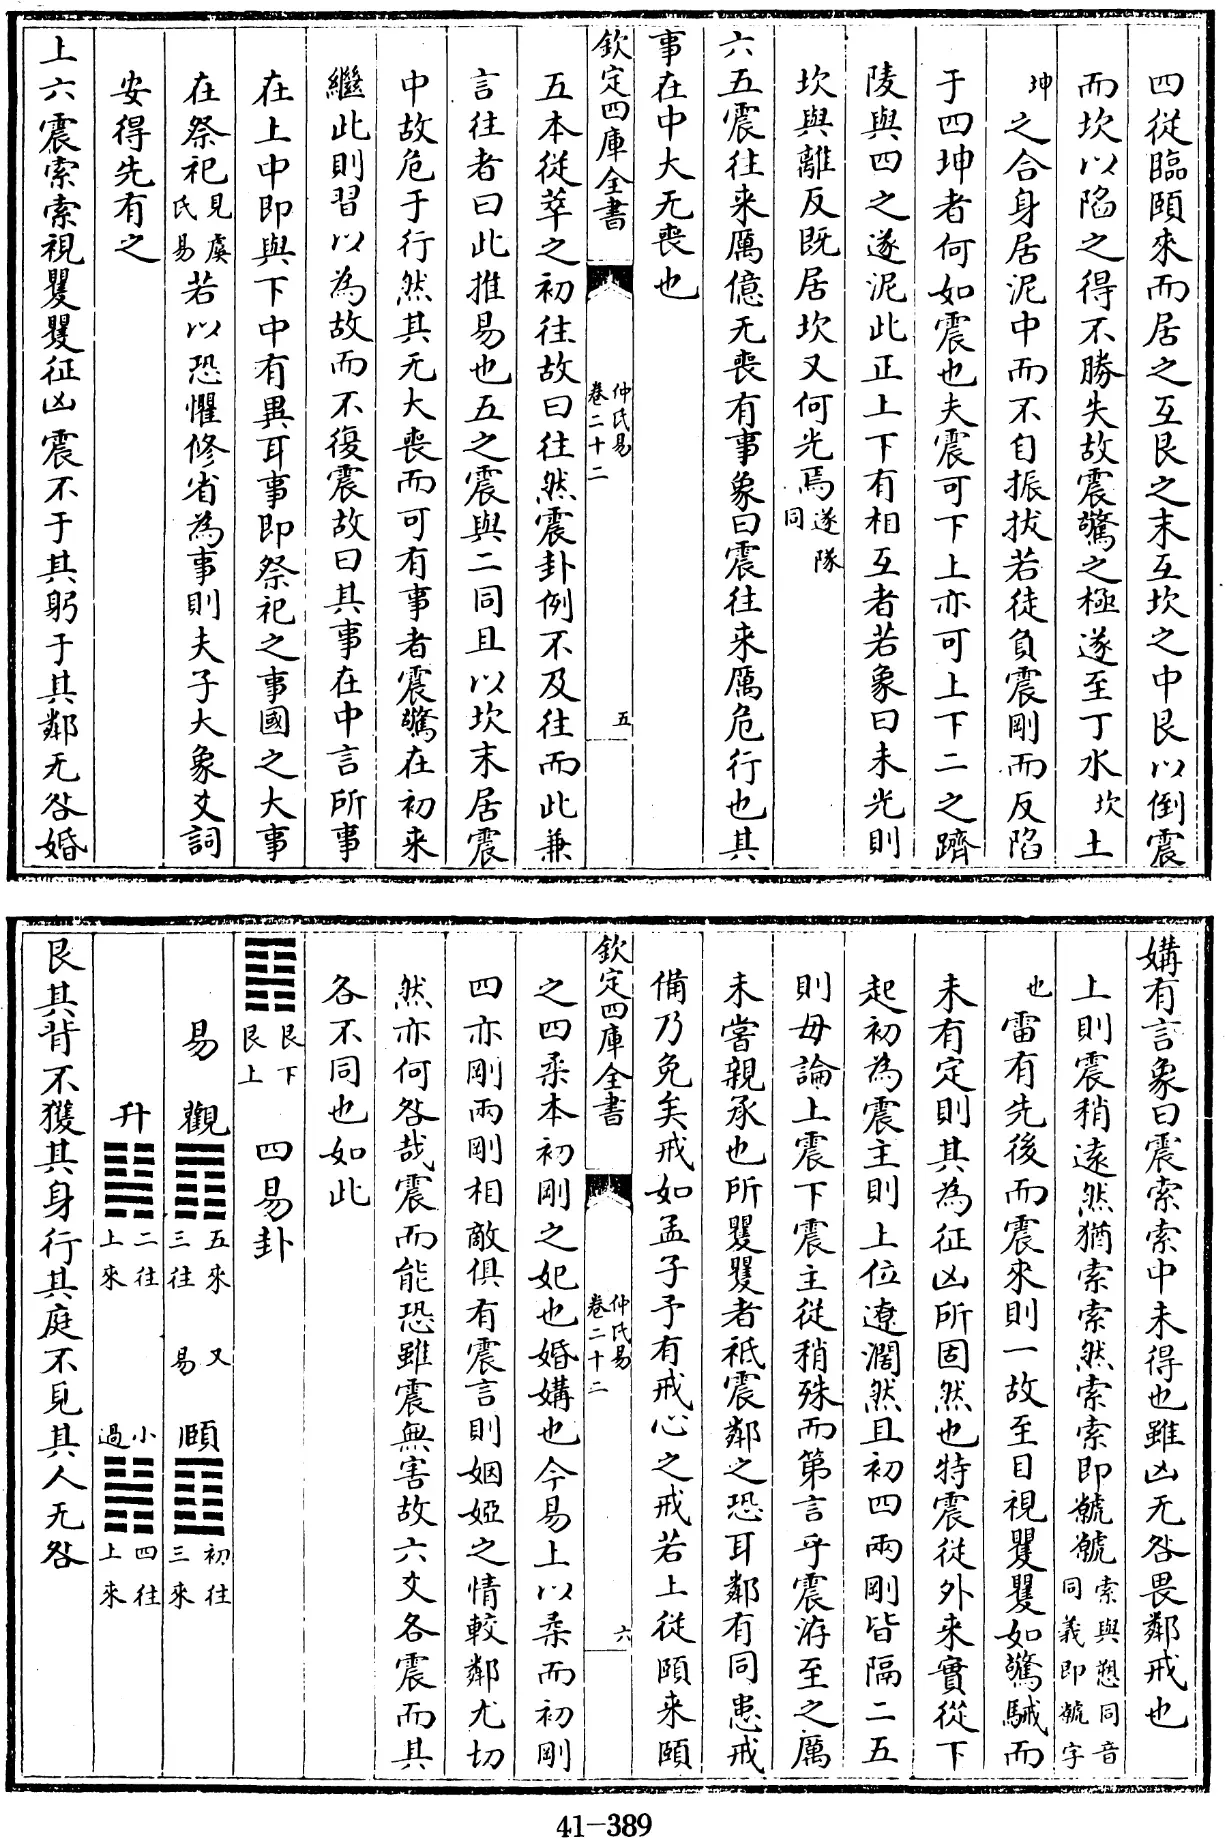 四從臨頤來而居之互艮之末互坎之中艮以倒震
而坎以陷之得不勝失故震驚之極遂至丁水坎土
坤之合身居泥中而不自振拔若徒負震剛而反陷
于四坤者何如震也夫震可下上亦可上下二之躋
陵與四之遂泥此正上下有相互者若象曰未光則
坎與離反既居坎又何光焉遂隊同
六五震往來厲億无喪有事象曰震往來厲危行也其
事在中大无喪也
欽定四庫全書
仲氏易
卷二十二
五
五本從萃之初往故曰往然震卦例不及往而此兼
言往者曰此推易也五之震與二同且以坎末居震
中故危于行然其无大喪而可有事者震驚在初來
繼此則習以為故而不復震故曰其事在中言所事
在上中即與下中有異耳事即祭祀之事國之大事
在祭祀見虞氏易若以恐懼修省為事則夫子大象爻詞
安得先有之
上六震索索視矍矍征凶震不于其躬于其鄰无咎婚
媾有言象曰震索索中未得也雖凶无咎畏鄰戒也
上則震稍遠然猶索索然索索即虩虩索與愬同音同義即虩字
也雷有先後而震來則一故至目視矍矍如驚駴而
未有定則其為征凶所固然也特震從外來實從下
起初為震主則上位遼濶然且初四兩剛皆隔二五
則毋論上震下震主從稍殊而第言乎震洊至之厲
未嘗親承也所矍矍者祗震鄰之恐耳鄰有同患戒
備乃免矣戒如孟子予有戒心之戒若上從頤來頤
欽定四庫全書
仲氏易
卷二十二
六
之四柔本初剛之妃也婚媾也今易上以柔而初剛
四亦剛兩剛相敵俱有震言則姻婭之情較鄰尤切
然亦何咎哉震而能恐雖震無害故六爻各震而其
各不同也如此
艮下艮上 四易卦
易 觀 五來三往 又易 頤 初往三來
升 二往上來 小過 四往上來
艮其背不獲其身行其庭不見其人无咎
41-389